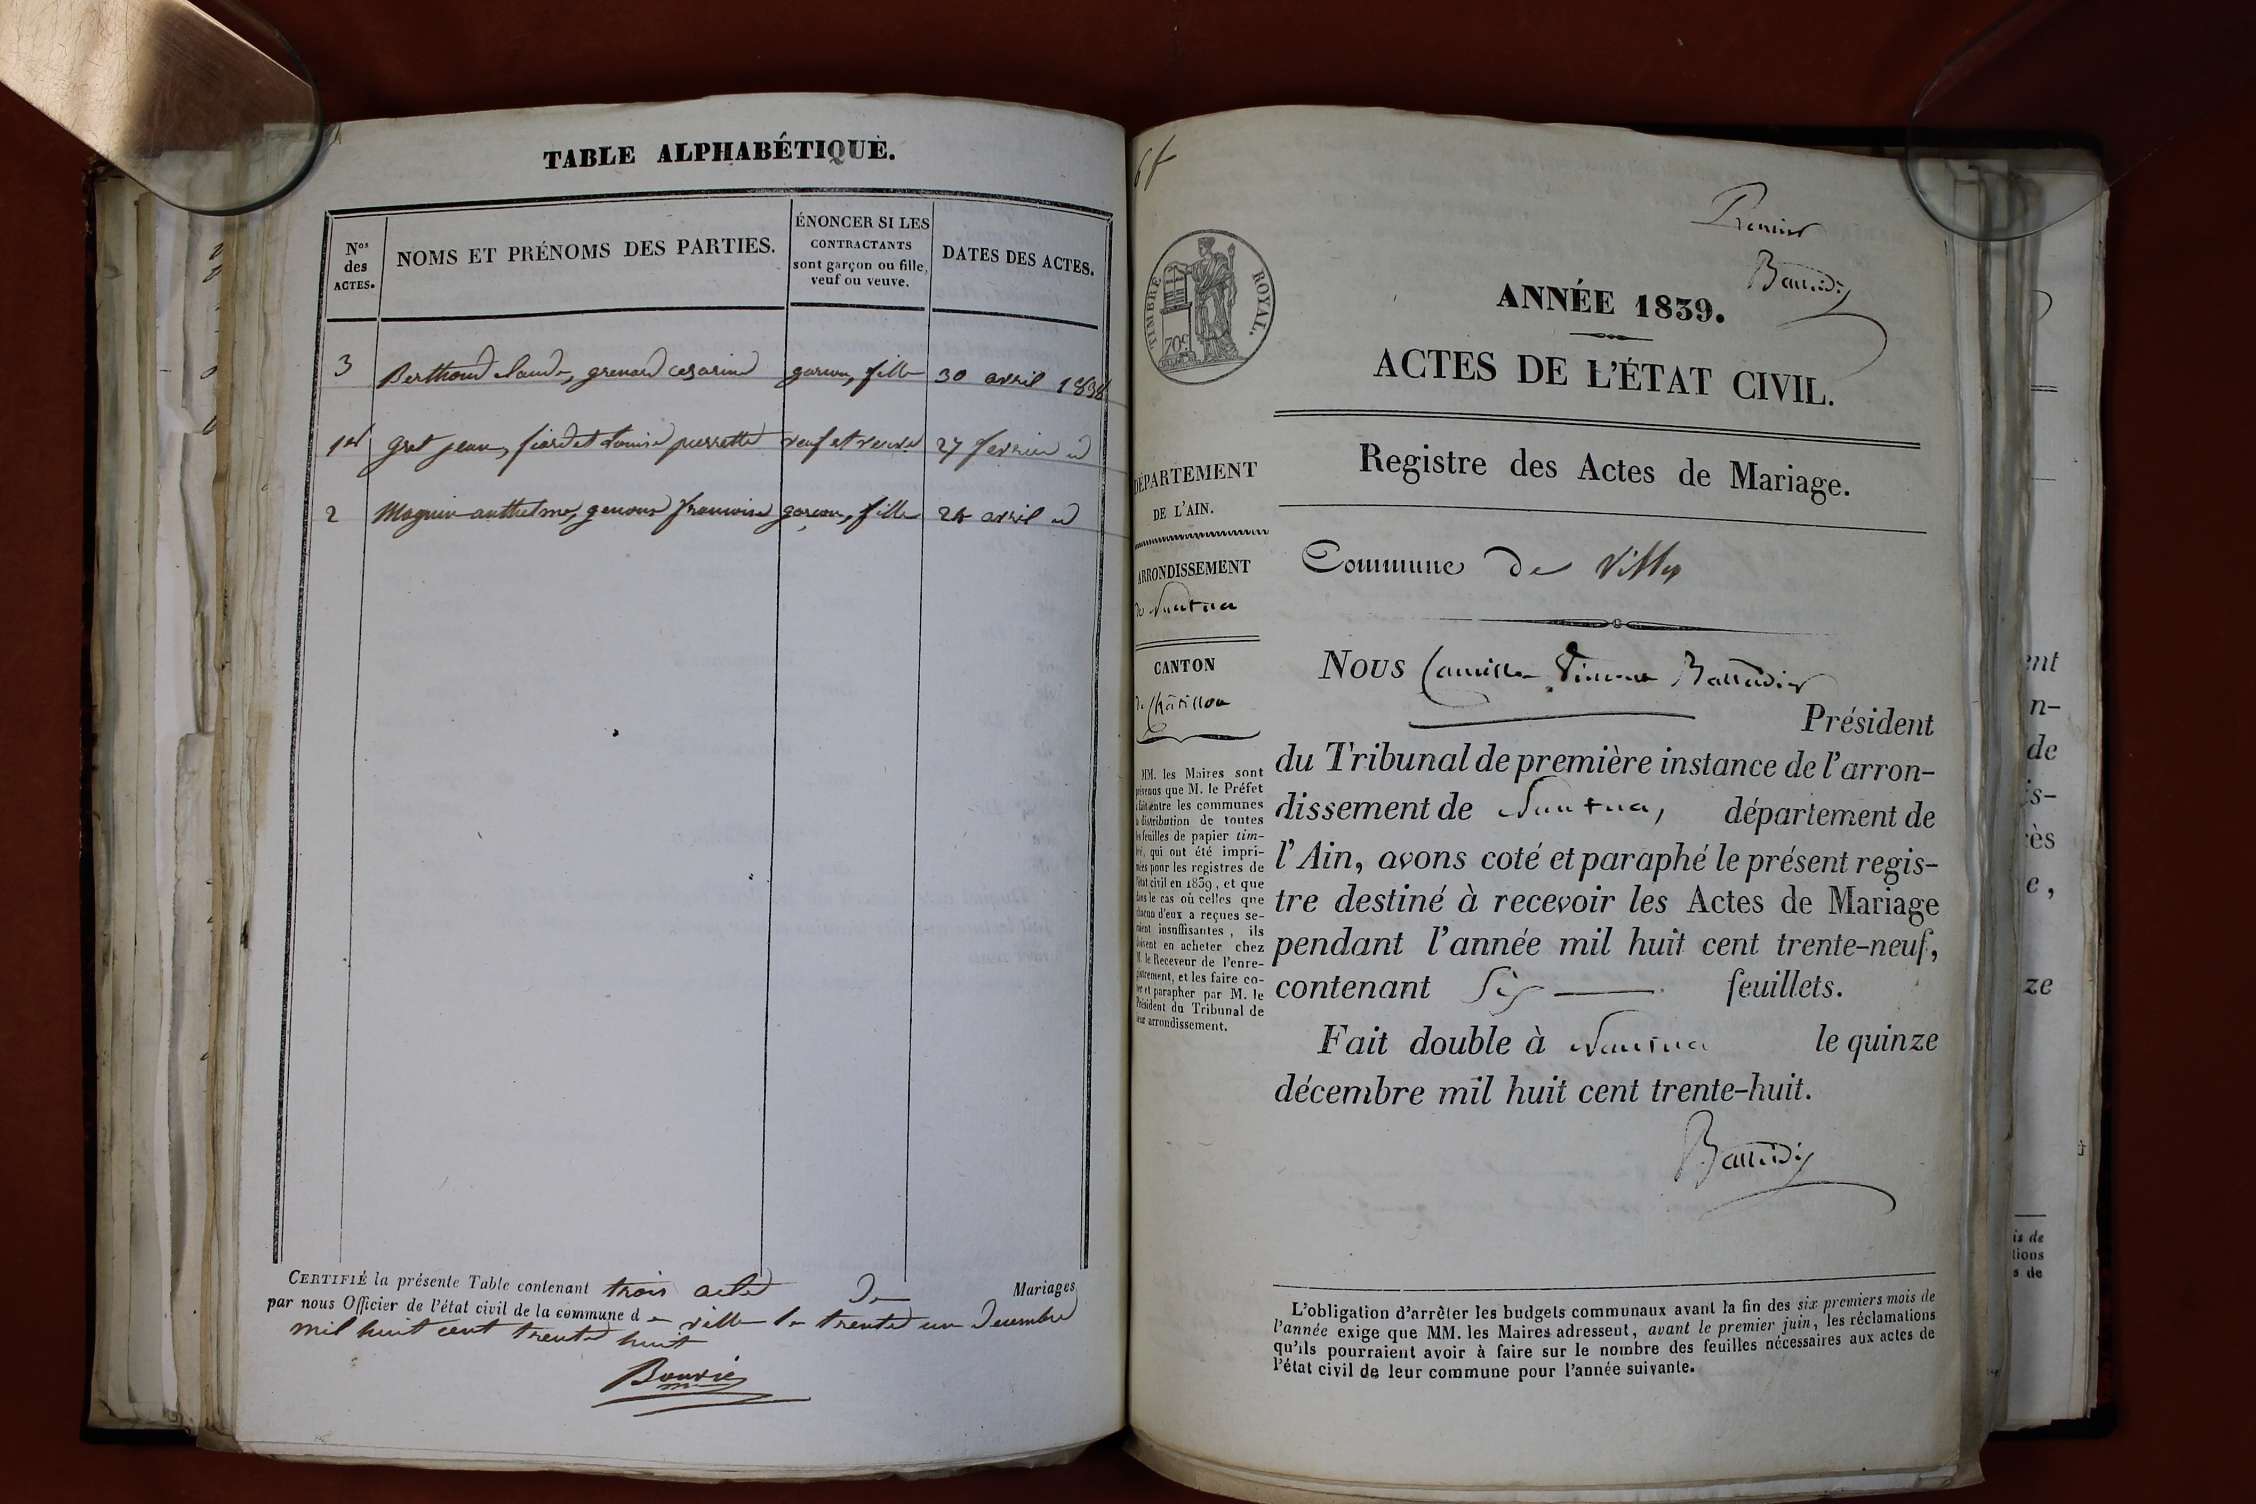 TABLE ALPHABÉTIQUE.
Nos des ACTES.
NOMS ET PRÉNOMS DES PARTIES.
ÉNONCER SI LES
CONTRACTANTS
sont garçon ou fille,
veuf ou veuve.
DATES DES ACTES.
3 Berthoud claude, grenard cesarine garcon, fille 30 avril 1838
1er gret jean, fiardet Louise pierrette veuf et veuve 27 fevrier id
2 Magnin anthelme, genoud francoise garcon, fille 28 avril id
CERTIFIÉ la présente Table contenant trois actes De Mariages
par nous Officier de l'état civil de la commune de ville le trente un Decembre
mil huit cent trente huit
Bouvier
Premier
Baudin
TIMBRE ROYAL.
70c
ANNÉE 1839.
ACTES DE L'ÉTAT CIVIL.
Registre des Actes de Mariage.
DÉPARTEMENT
DE L'AIN.
ARRONDISSEMENT
de Nantua
CANTON
de Châtillon
MM. les Maires sont
prévenus que M. le Préfet
a fait entre les communes
la distribution de toutes
les feuilles de papier tim-
bré, qui ont été impri-
mées pour les registres de
l'état civil en 1839, et que
dans le cas où celles que
chacun d'eux a reçues se-
raient insuffisantes, ils
doivent en acheter chez
M. le Receveur de l'enre-
gistrement, et les faire co-
ter et parapher par M. le
Président du Tribunal de
leur arrondissement.
Commune de Villes
NOUS Camille
Président
du Tribunal de première instance de l'arron-
dissement de Nantua, département de
l'Ain, avons coté et paraphé le présent regis-
tre destiné à recevoir les Actes de Mariage
pendant l'année mil huit cent trente-neuf,
contenant Six feuillets.
Fait double à Nantua le quinze
décembre mil huit cent trente-huit.
L'obligation d'arrêter les budgets communaux avant la fin des six premiers mois de
l'année exige que MM. les Maires adressent, avant le premier juin, les réclamations
qu'ils pourraient avoir à faire sur le nombre des feuilles nécessaires aux actes de
l'état civil de leur commune pour l'année suivante.